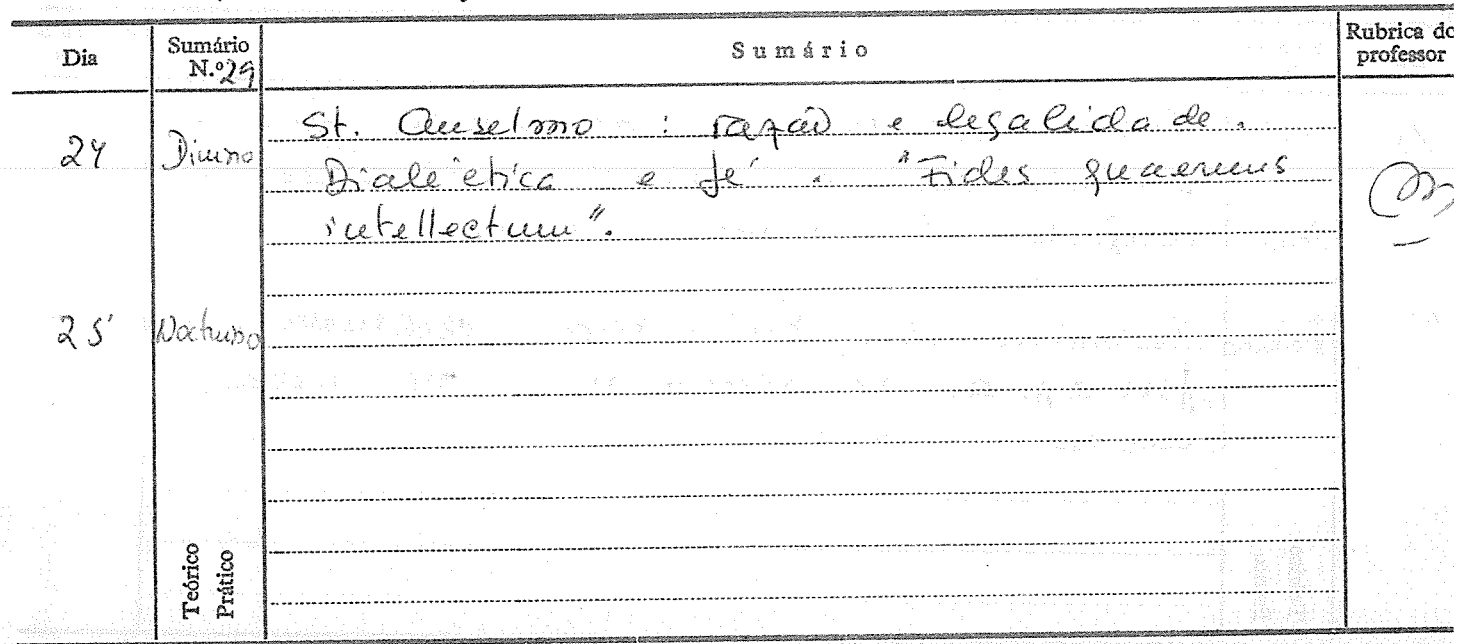 Dia
Sumário
N.º 29
Sumário
Rubrica do
professor
24
Diurno
St. Anselmo : razão e legalidade.
Dialéctica e fé. "Fides quaerens
intellectum".
25
Nocturno
Teórico
Prático